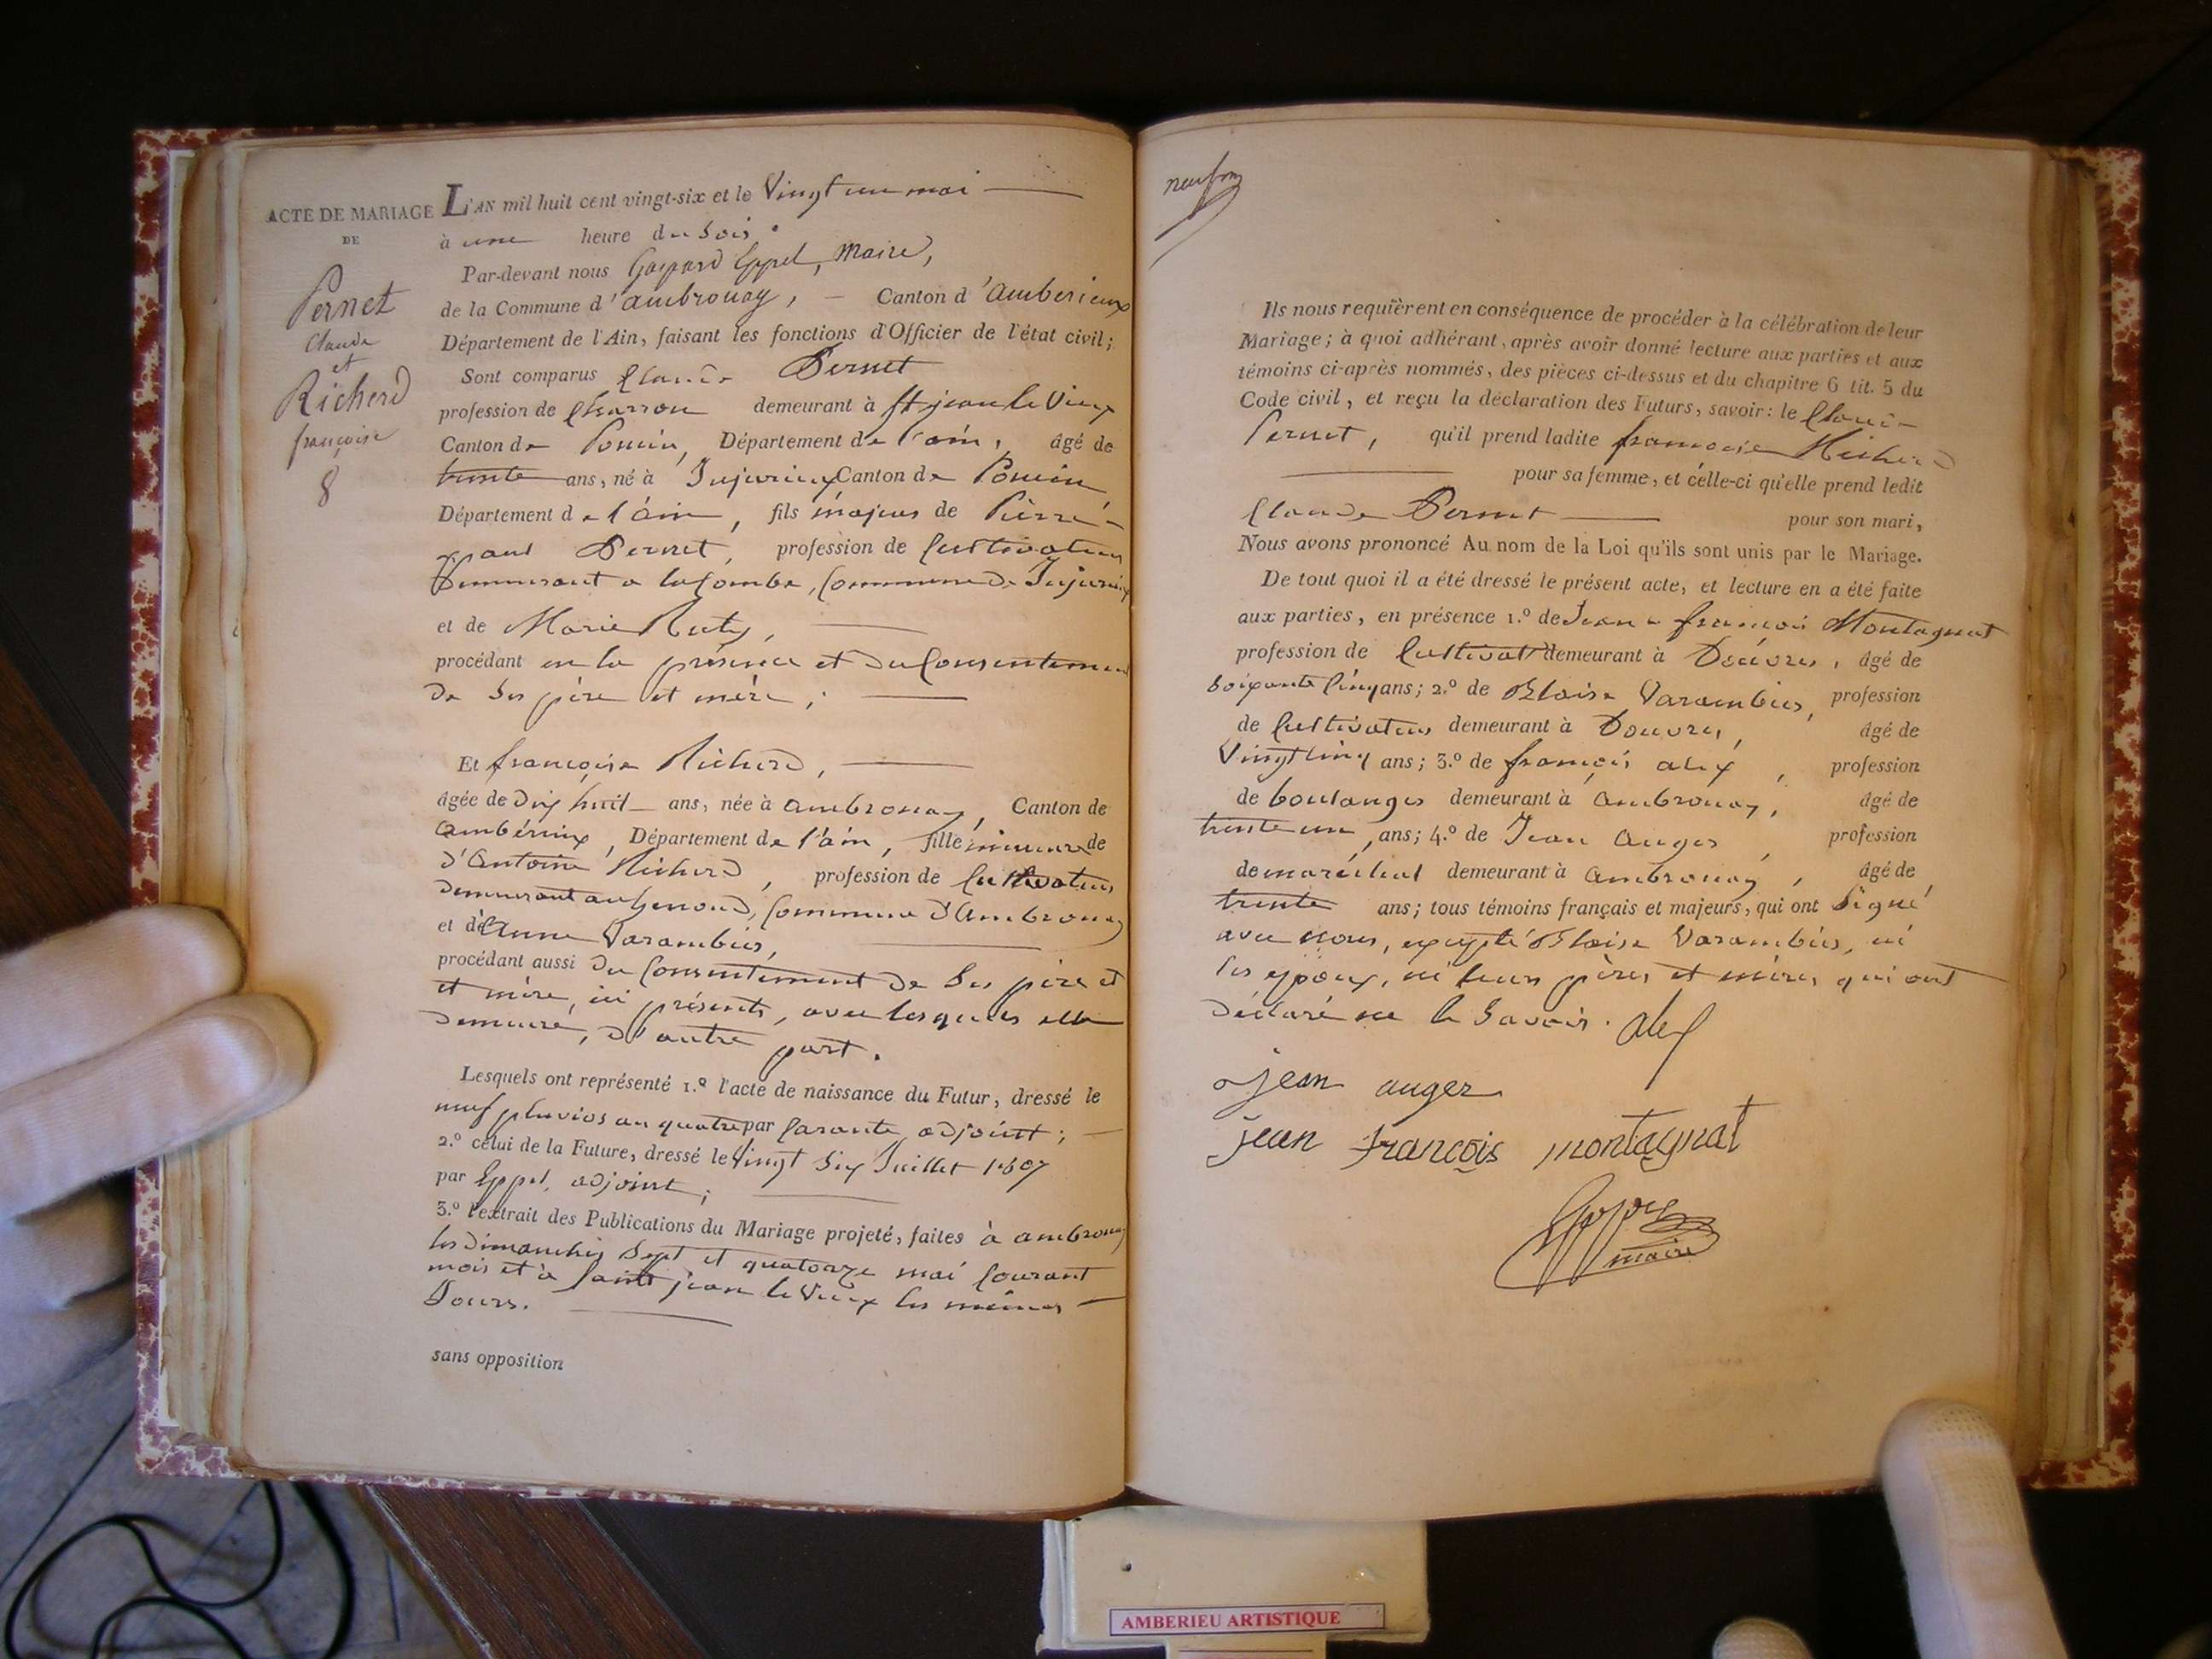 ACTE DE MARIAGE
DE
Pernet
Claude
et
Richerd
françoise
8
L'AN mil huit cent vingt-six et le Vingt un mai
à une heure du Soir.
Par-devant nous Gaspard Eppel, Maire,
de la Commune d'ambronay, – Canton d'Amberieux
Département de l'Ain, faisant les fonctions d'Officier de l'état civil;
Sont comparus Claude Pernet
profession de Charron demeurant à St jean le Vieux
Canton de Poncin, Département de l'ain, âgé de
trente ans, né à Jujurieux Canton de Poncin
Département de l'ain, fils majeur de Pierre-
paul Pernet, profession de Cultivateur
Demeurant a la Combe, Commune de Jujurieux
et de Marie Ruty,
procédant en la présence et du Consentement
de Ses père et mère;
Et françoise Richerd,
âgée de dix huit ans, née à ambronay, Canton de
ambérieux, Département de l'ain, fille mineure de
d'Antoine Richerd, profession de Cultivateur
demeurant au Genoud, Commune d'Ambronay
et de Anne Varambier,
procédant aussi du Consentement de Ses père et
et mère, ici présents, avec lesquels elle
demeure, d'autre part.
Lesquels ont représenté 1.º l'acte de naissance du Futur, dressé le
neuf pluvios an quatre par Carante adjoint;
2.º celui de la Future, dressé le Vingt Six Juillet 1807
par Eppel, adjoint;
3.º l'extrait des Publications du Mariage projeté, faites à ambronay
les dimanches Sept et quatorze mai Courant
mois et à Saint jean le Vieux les mêmes
Jours.
sans opposition
Ils nous requièrent en conséquence de procéder à la célébration de leur
Mariage; à quoi adhérant, après avoir donné lecture aux parties et aux
témoins ci-après nommés, des pièces ci-dessus et du chapitre 6 tit. 5 du
Code civil, et reçu la déclaration des Futurs, savoir: le Claude
Pernet, qu'il prend ladite francoise Richerd
pour sa femme, et celle-ci qu'elle prend ledit
Claude Pernet pour son mari,
Nous avons prononcé Au nom de la Loi qu'ils sont unis par le Mariage.
De tout quoi il a été dressé le présent acte, et lecture en a été faite
aux parties, en présence 1.º de Jean-francois Montagnat
profession de Cultivat demeurant à Douvres, âgé de
Soixante Cinq ans; 2.º de Blaise Varambier, profession
de Cultivateur demeurant à Douvres, âgé de
Vingt Cinq ans; 3.º de françois alex, profession
de boulanger demeurant à Ambronay, âgé de
trente un, ans; 4.º de Jean Auger, profession
de maréchal demeurant à ambronay, âgé de
trente ans; tous témoins français et majeurs, qui ont Signé
avec nous, excepté Blaise Varambier, ni
les époux, ni leurs pères et mères qui ont
déclaré ne le Savoir. alex
jean auger
jean francois montagnat
Eppel
maire
AMBERIEU ARTISTIQUE